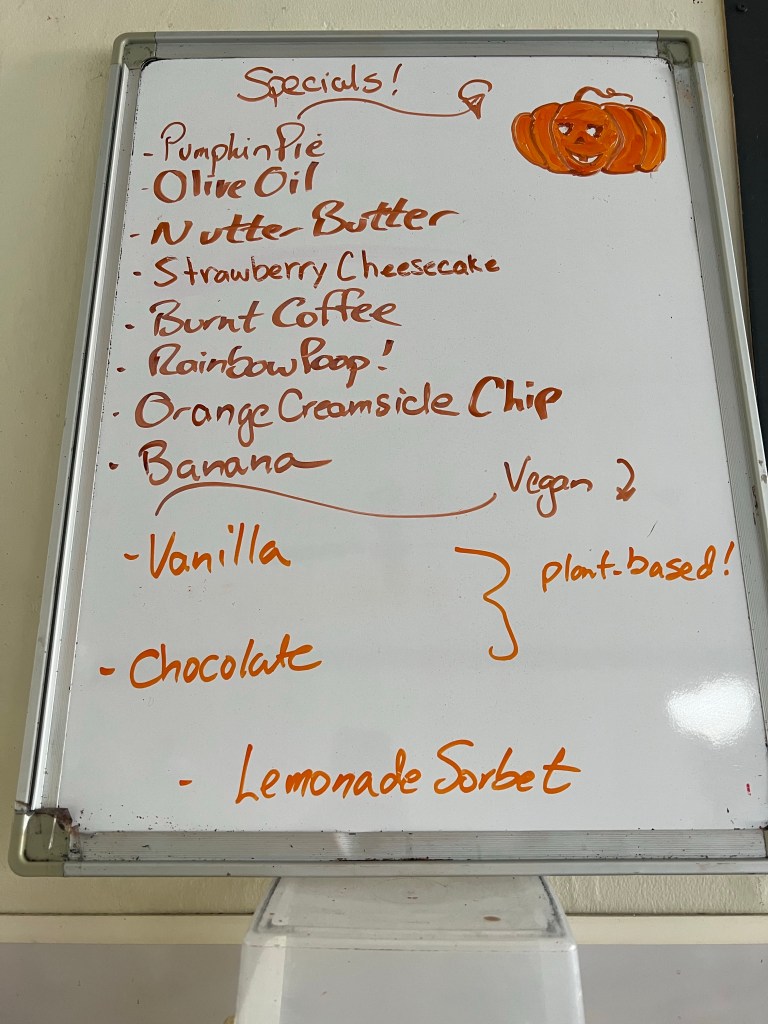 Specials!
- Pumpkin Pie
- Olive Oil
- Nutter Butter
- Strawberry Cheesecake
- Burnt Coffee
- Rainbow Poop!
- Orange Creamsicle Chip
- Banana
Vegan
- Vanilla
plant-based!
- Chocolate
- Lemonade Sorbet